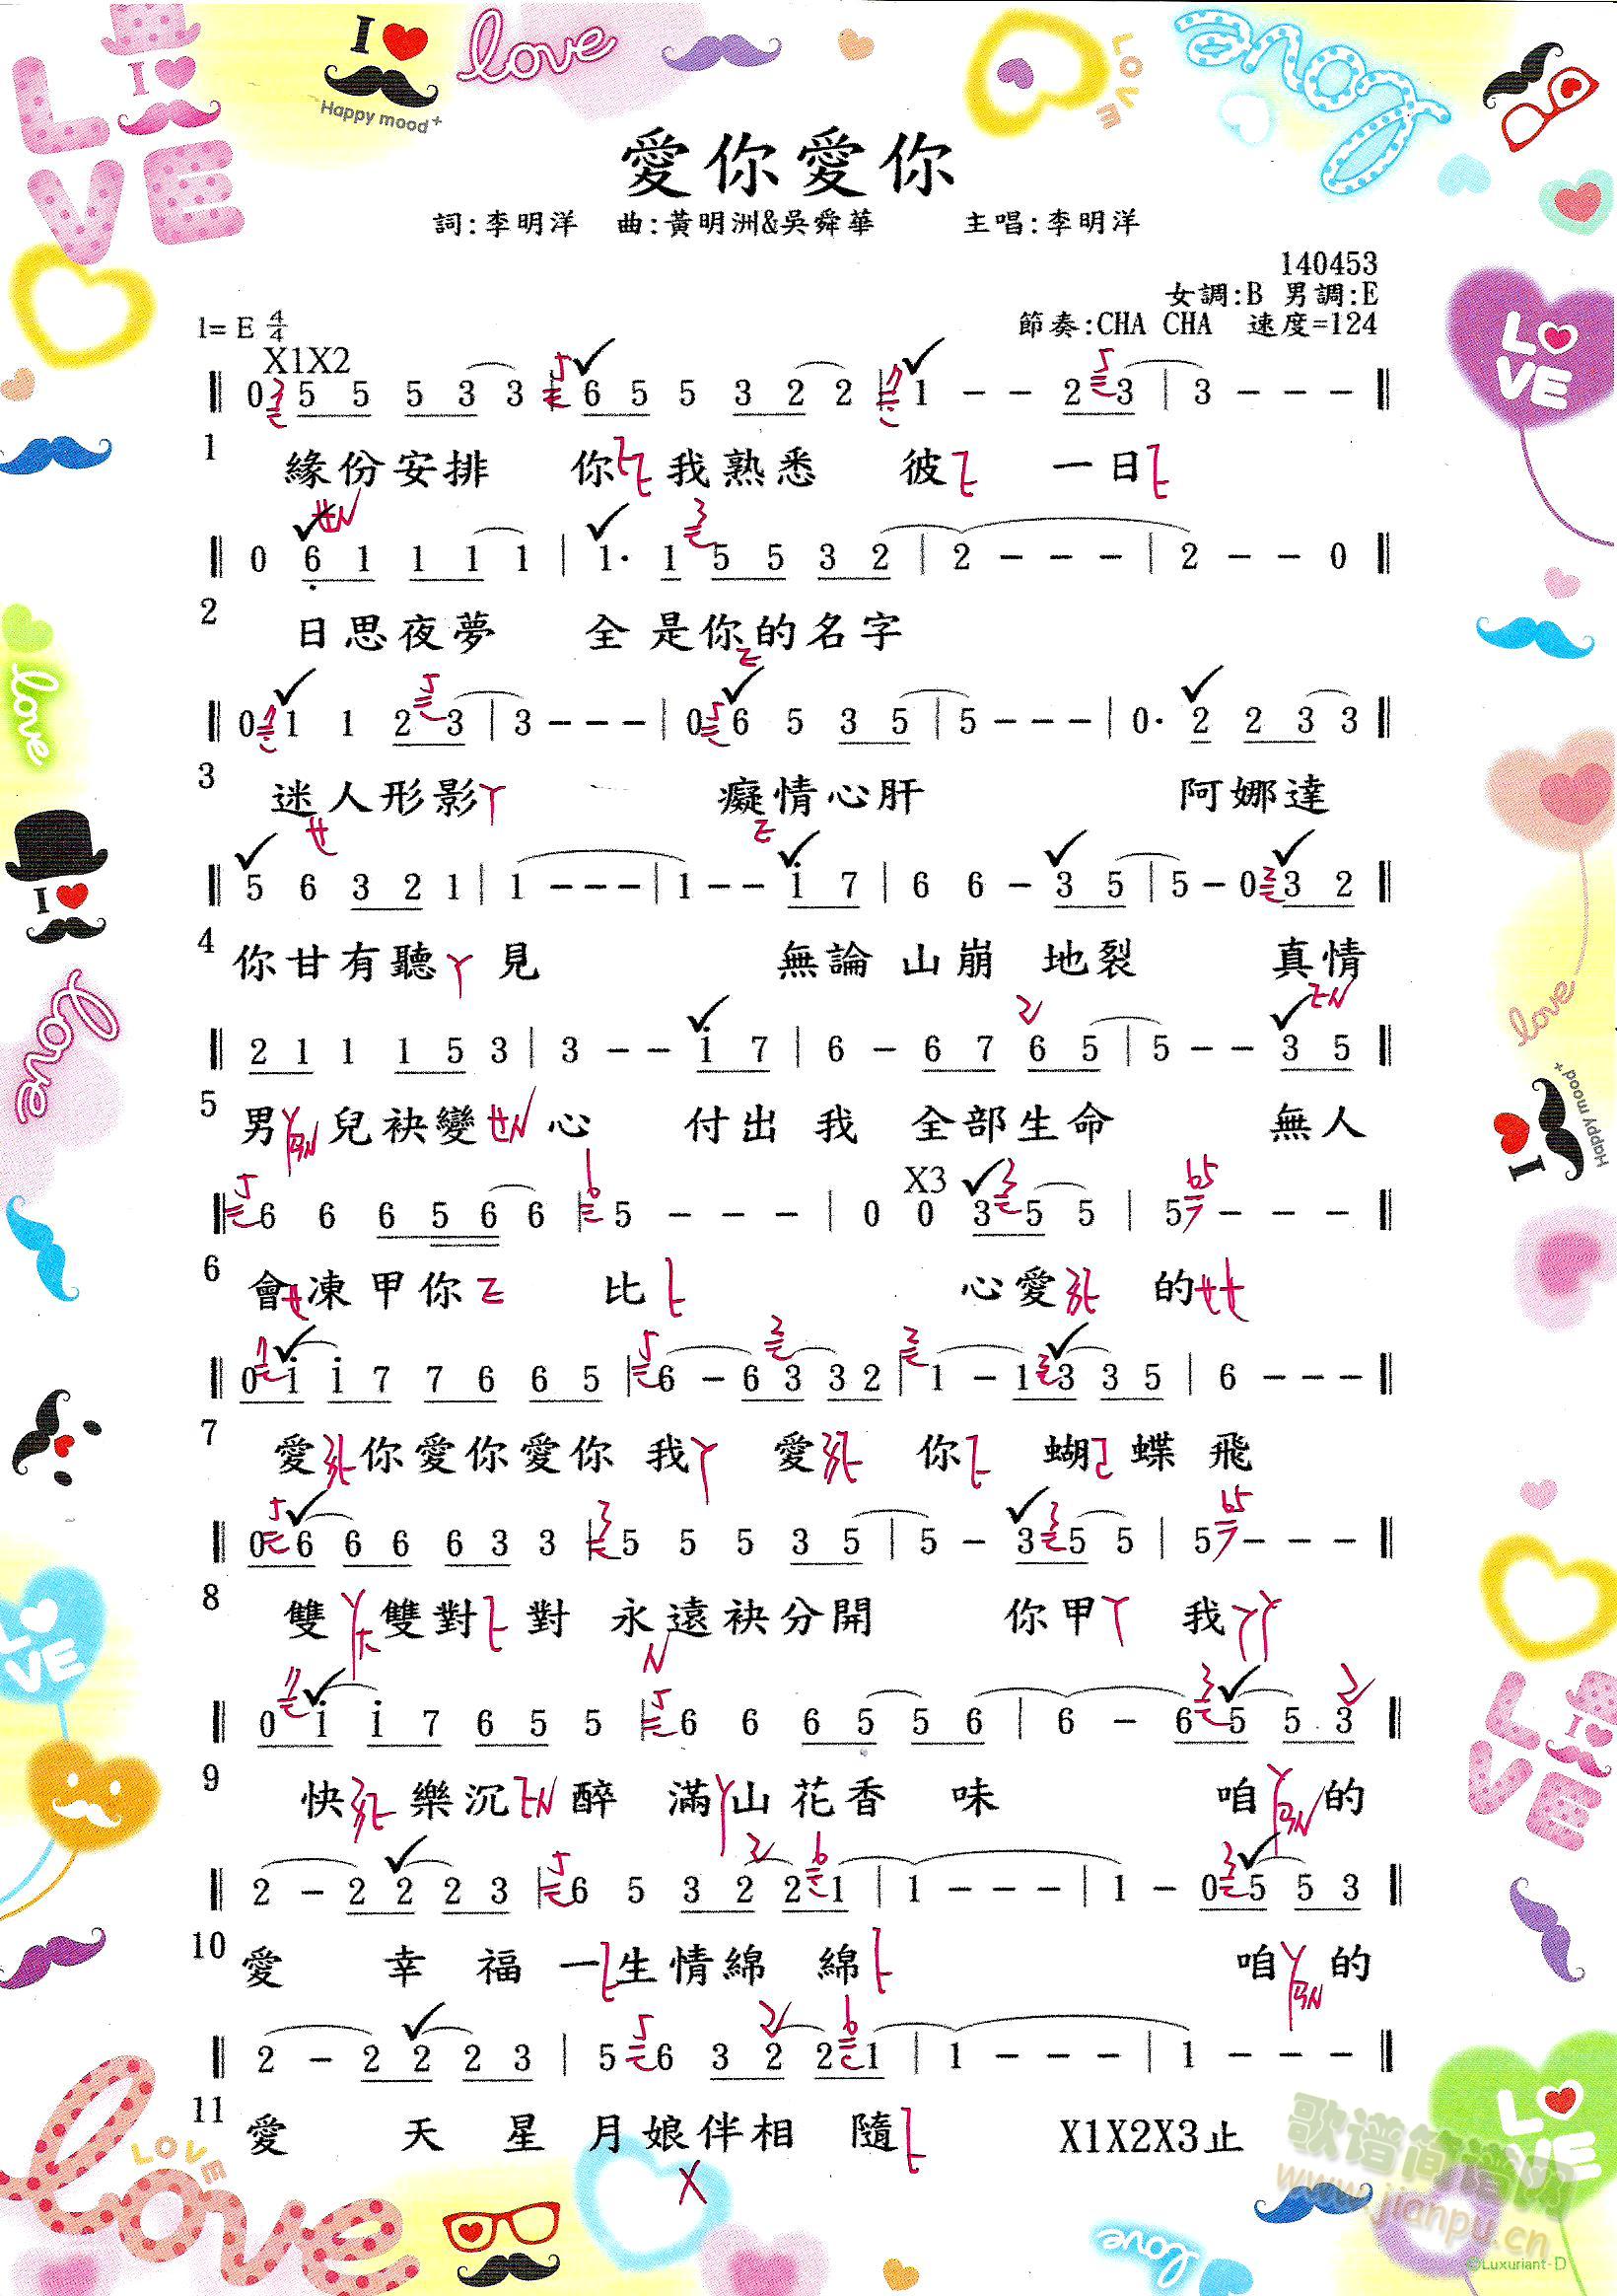 愛你愛你
詞:李明洋 曲:黃明洲&吳舜華 主唱:李明洋
140453
女調:B 男調:E
1= E 4/4 節奏:CHA CHA 速度=124
X1X2
0 5 5 5 3 3 | 6 5 5 3 2 2 | 1 - - 2 3 | 3 - - -
1 緣份安排 你 我熟悉 彼 一日
0 6 1 1 1 1 | 1· 1 5 5 3 2 | 2 - - - | 2 - - 0
2 日思夜夢 全是你的名字
0 1 1 2 3 | 3 - - - | 0 6 5 3 5 | 5 - - - | 0· 2 2 3 3
3 迷人形影 癡情心肝 阿娜達
5 6 3 2 1 | 1 - - - | 1 - - i 7 | 6 6 - 3 5 | 5 - 0 3 2
4 你甘有聽 見 無論 山崩 地裂 真情
2 1 1 1 5 3 | 3 - - i 7 | 6 - 6 7 6 5 | 5 - - 3 5
5 男 兒袂變 心 付出 我 全部生命 無人
X3
6 6 6 5 6 6 | 5 - - - | 0 0 3 5 5 | 5 - - -
6 會 凍甲你 比 心愛 的
0 i i 7 7 6 6 5 | 6 - 6 3 3 2 | 1 - 1 3 3 5 | 6 - - -
7 愛 你愛你愛你 我 愛 你 蝴 蝶 飛
0 6 6 6 6 3 3 | 5 5 5 3 5 | 5 - 3 5 5 | 5 - - -
8 雙 雙對 對 永遠袂分開 你甲 我
0 i i 7 6 5 5 | 6 6 6 5 5 6 | 6 - 6 5 5 3
9 快 樂沉 醉 滿 山花香 味 咱 的
2 - 2 2 2 3 | 6 5 3 2 2 1 | 1 - - - | 1 - 0 5 5 3
10 愛 幸 福 一 生情綿 綿 咱 的
2 - 2 2 2 3 | 5 6 3 2 2 1 | 1 - - - | 1 - - -
11 愛 天 星 月娘伴相 隨 X1X2X3止
歌谱简谱网
www.jianpu.cn
©Luxuriant-D
I
Happy mood+
love
LOVE